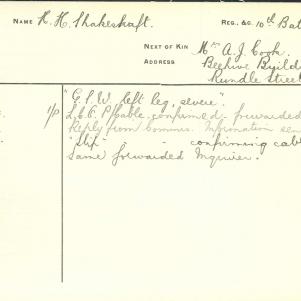 NAME H. H. Shakeshaft. REG. &C. 10th Bat
NEXT OF KIN Mrs A. J. Cook.
ADDRESS Beehive Build
Rundle Street
"G.S.W. left leg, severe".
1/P L.&C. P/Cable confirmed forwarded
Reply from Commns. Information sen
"Slip" - confirming cab
Same forwarded Inquirer.